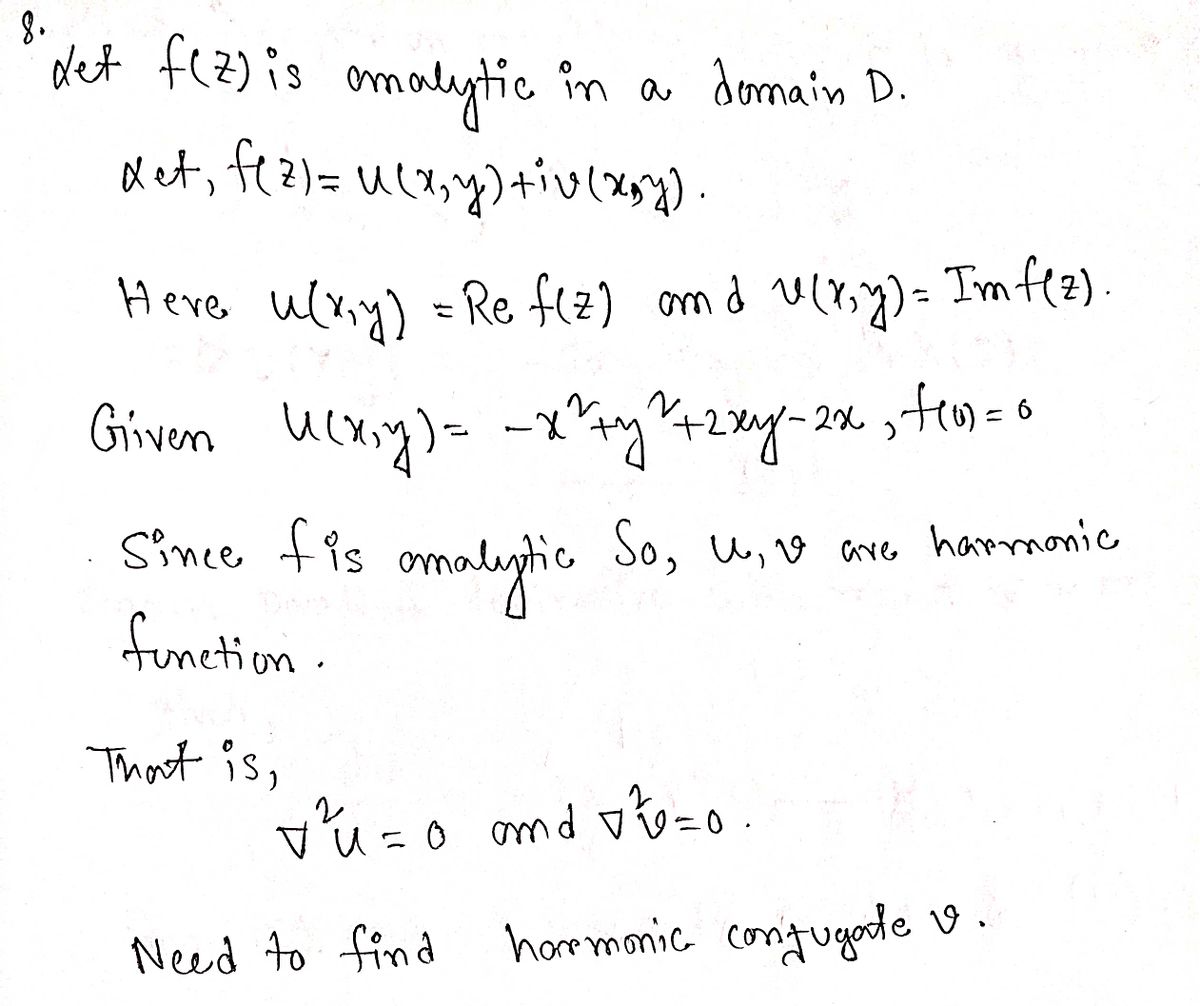 8.
Let f(z) is analytic in a domain D.
Let, f(z) = u(x,y)+iv(x,y).
Here u(x,y) = Re f(z) and v(x,y) = Im f(z).
Given u(x,y) = -x²+y²+2xy-2x, f(0) = 0
Since f is analytic So, u, v are harmonic
function.
That is,
∇²u = 0 and ∇²v = 0.
Need to find harmonic conjugate v.